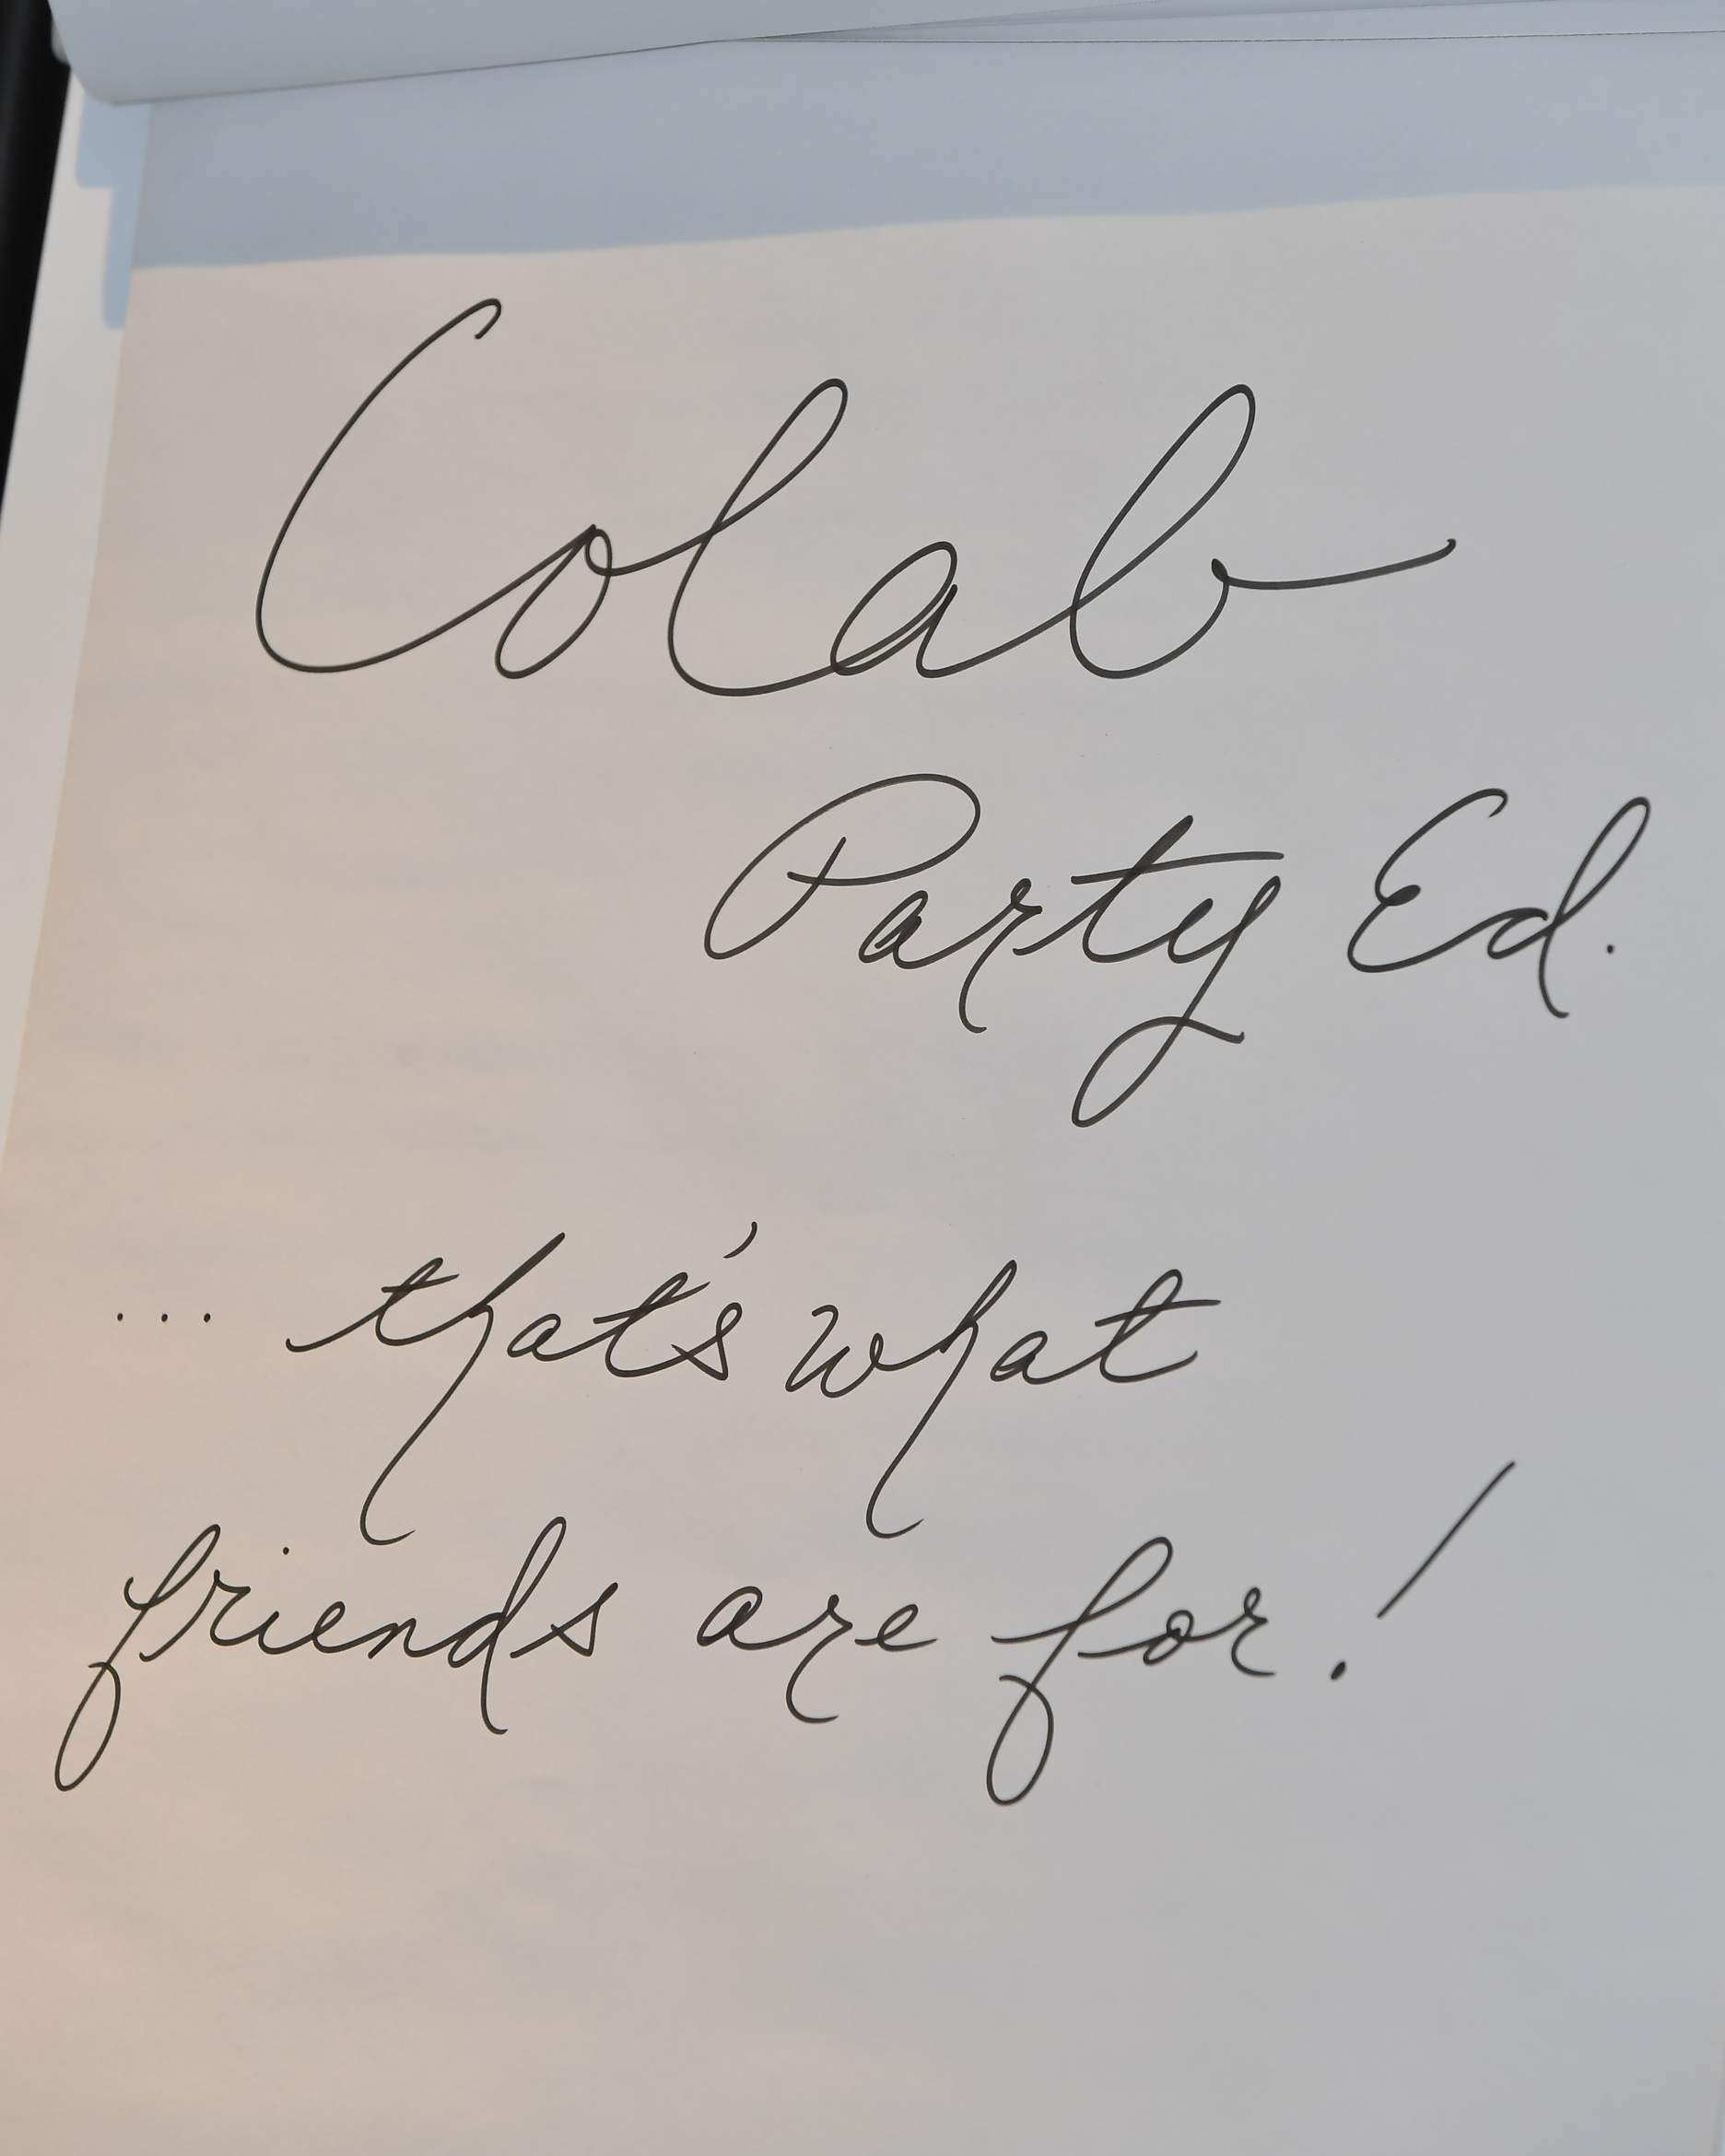 Colab
Party Ed.
... that's what
friends are for!